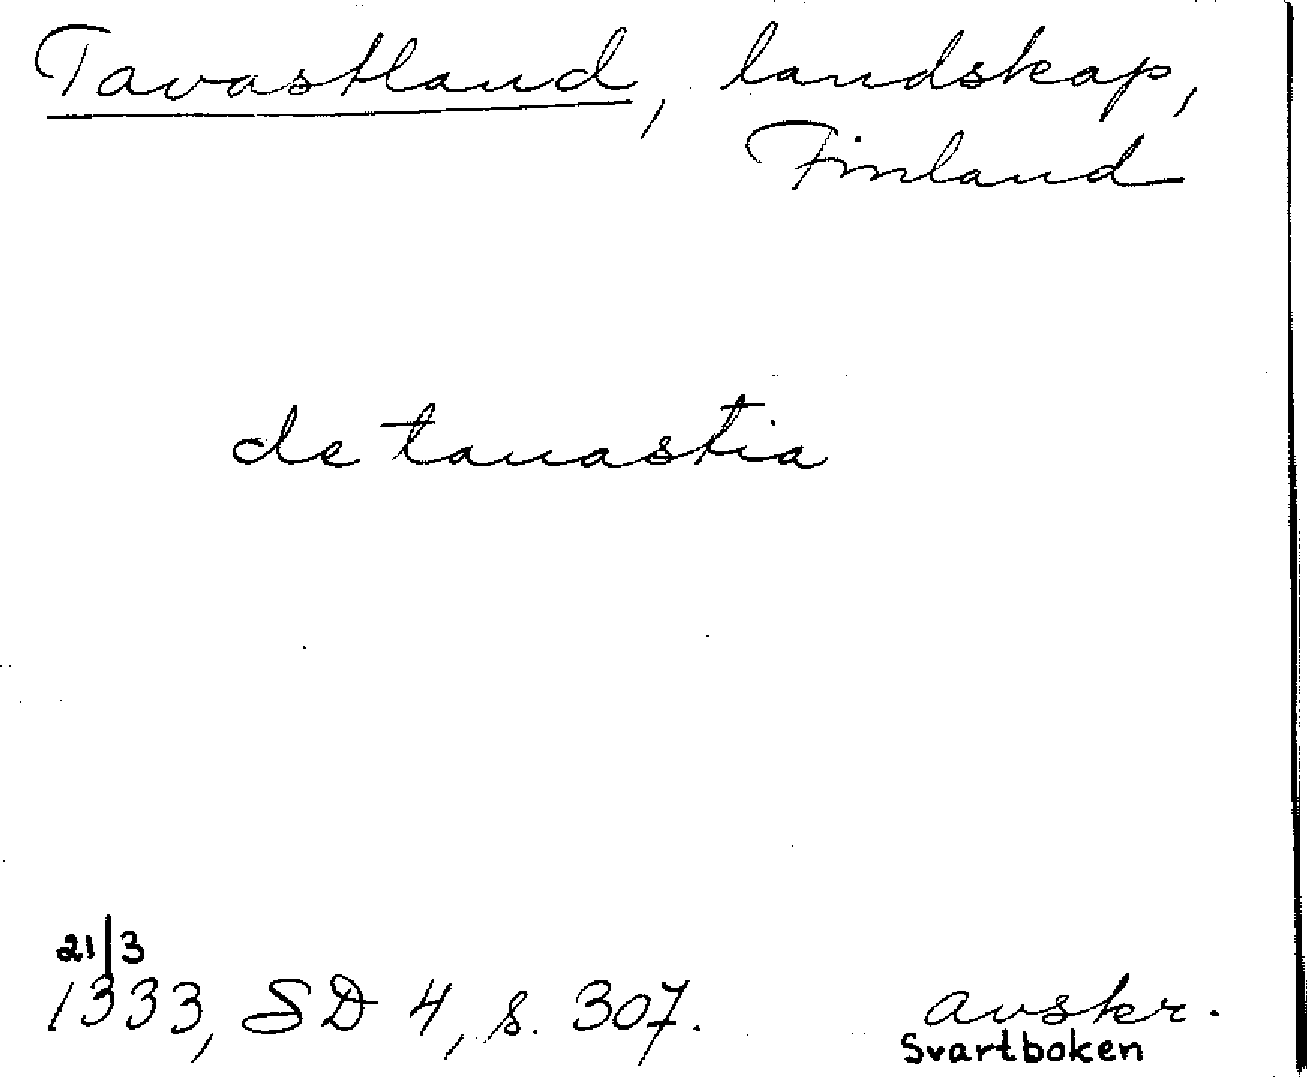 Tavastland, landskap,
Finland
de tauastia
21/3
1333, SD 4, s. 307.
avskr.
Svartboken